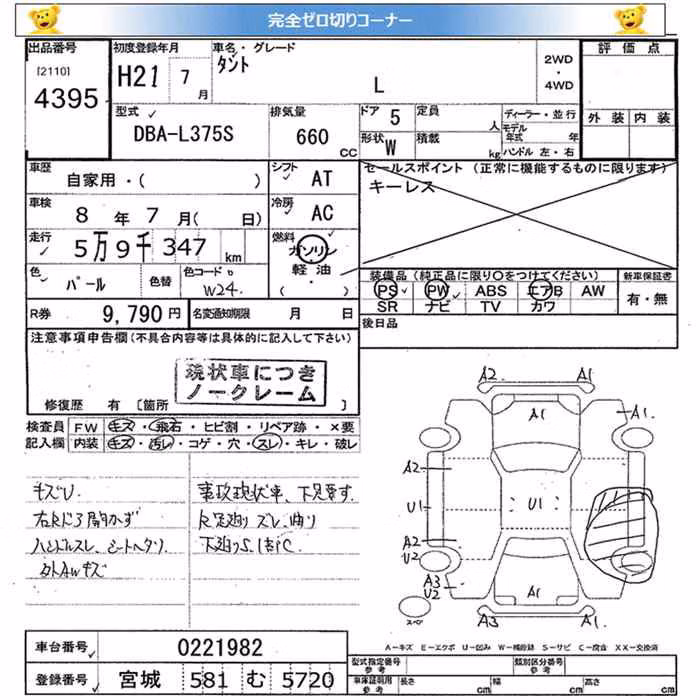 完全ゼロ切りコーナー
出品番号 初度登録年月 車名・グレード 評価点
[2110] H21 7月 タント L 2WD・4WD
4395
型式 排気量 ドア 5 定員 人 ディーラー・並行 外装 内装
DBA-L375S 660 CC 形状 W 積載 kg モデル年式 年 ハンドル 左・右
車歴 シフト セールスポイント (正常に機能するものに限ります)
自家用・( ) AT キーレス
車検 8年 7月( 日) 冷房 AC
走行 5万9千347 km 燃料 ガソリン 軽油 ・( )
色 パール 色替 色コード W24. 装備品 (純正品に限り○をつけてください) 新車保証書
PS PW ABS エアB AW 有・無
SR ナビ TV カワ
R券 9,790円 名変通知期限 月 日 後日品
注意事項申告欄(不具合内容等は具体的に記入して下さい)
現状車につき
ノークレーム
修復歴 有 [箇所 ]
検査員 FW キズ・飛石・ヒビ割・リペア跡・×要
記入欄 内装 キズ・汚レ・コゲ・穴・スレ・キレ・破レ
キズU 事故現状車、下見要す
右Rドア開かず R足廻りズレ、曲り
ハンドルスレ、シートヘタリ 下廻りS.
カトAWキズ
A2 A1
A1 A1
A2
U1 U1
A2
U2
A3
U2 A1
スペ A3 A1
A−キズ E−エクボ U−凹み W−補修跡 S−サビ C−腐食 XX−交換済
車台番号 0221982 型式指定番号 参考 類別区分番号 参考
登録番号 宮城 581 む 5720 車庫証明用 参考 長さ cm 幅 cm 高さ cm